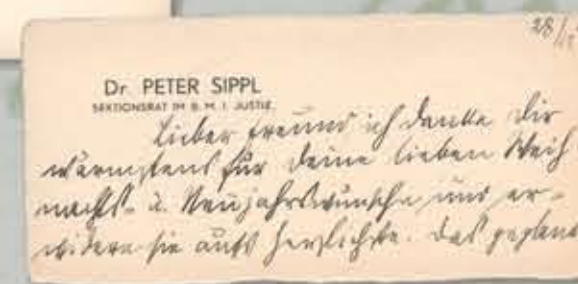 28/12
Dr. PETER SIPPL
SEKTIONSRAT IM B. M. F. JUSTIZ
Lieber Freund ich danke Dir
wärmstens für Deine lieben Weih
nachts- u. Neujahrswünsche und er-
widere sie aufs herzlichste. Das geplante